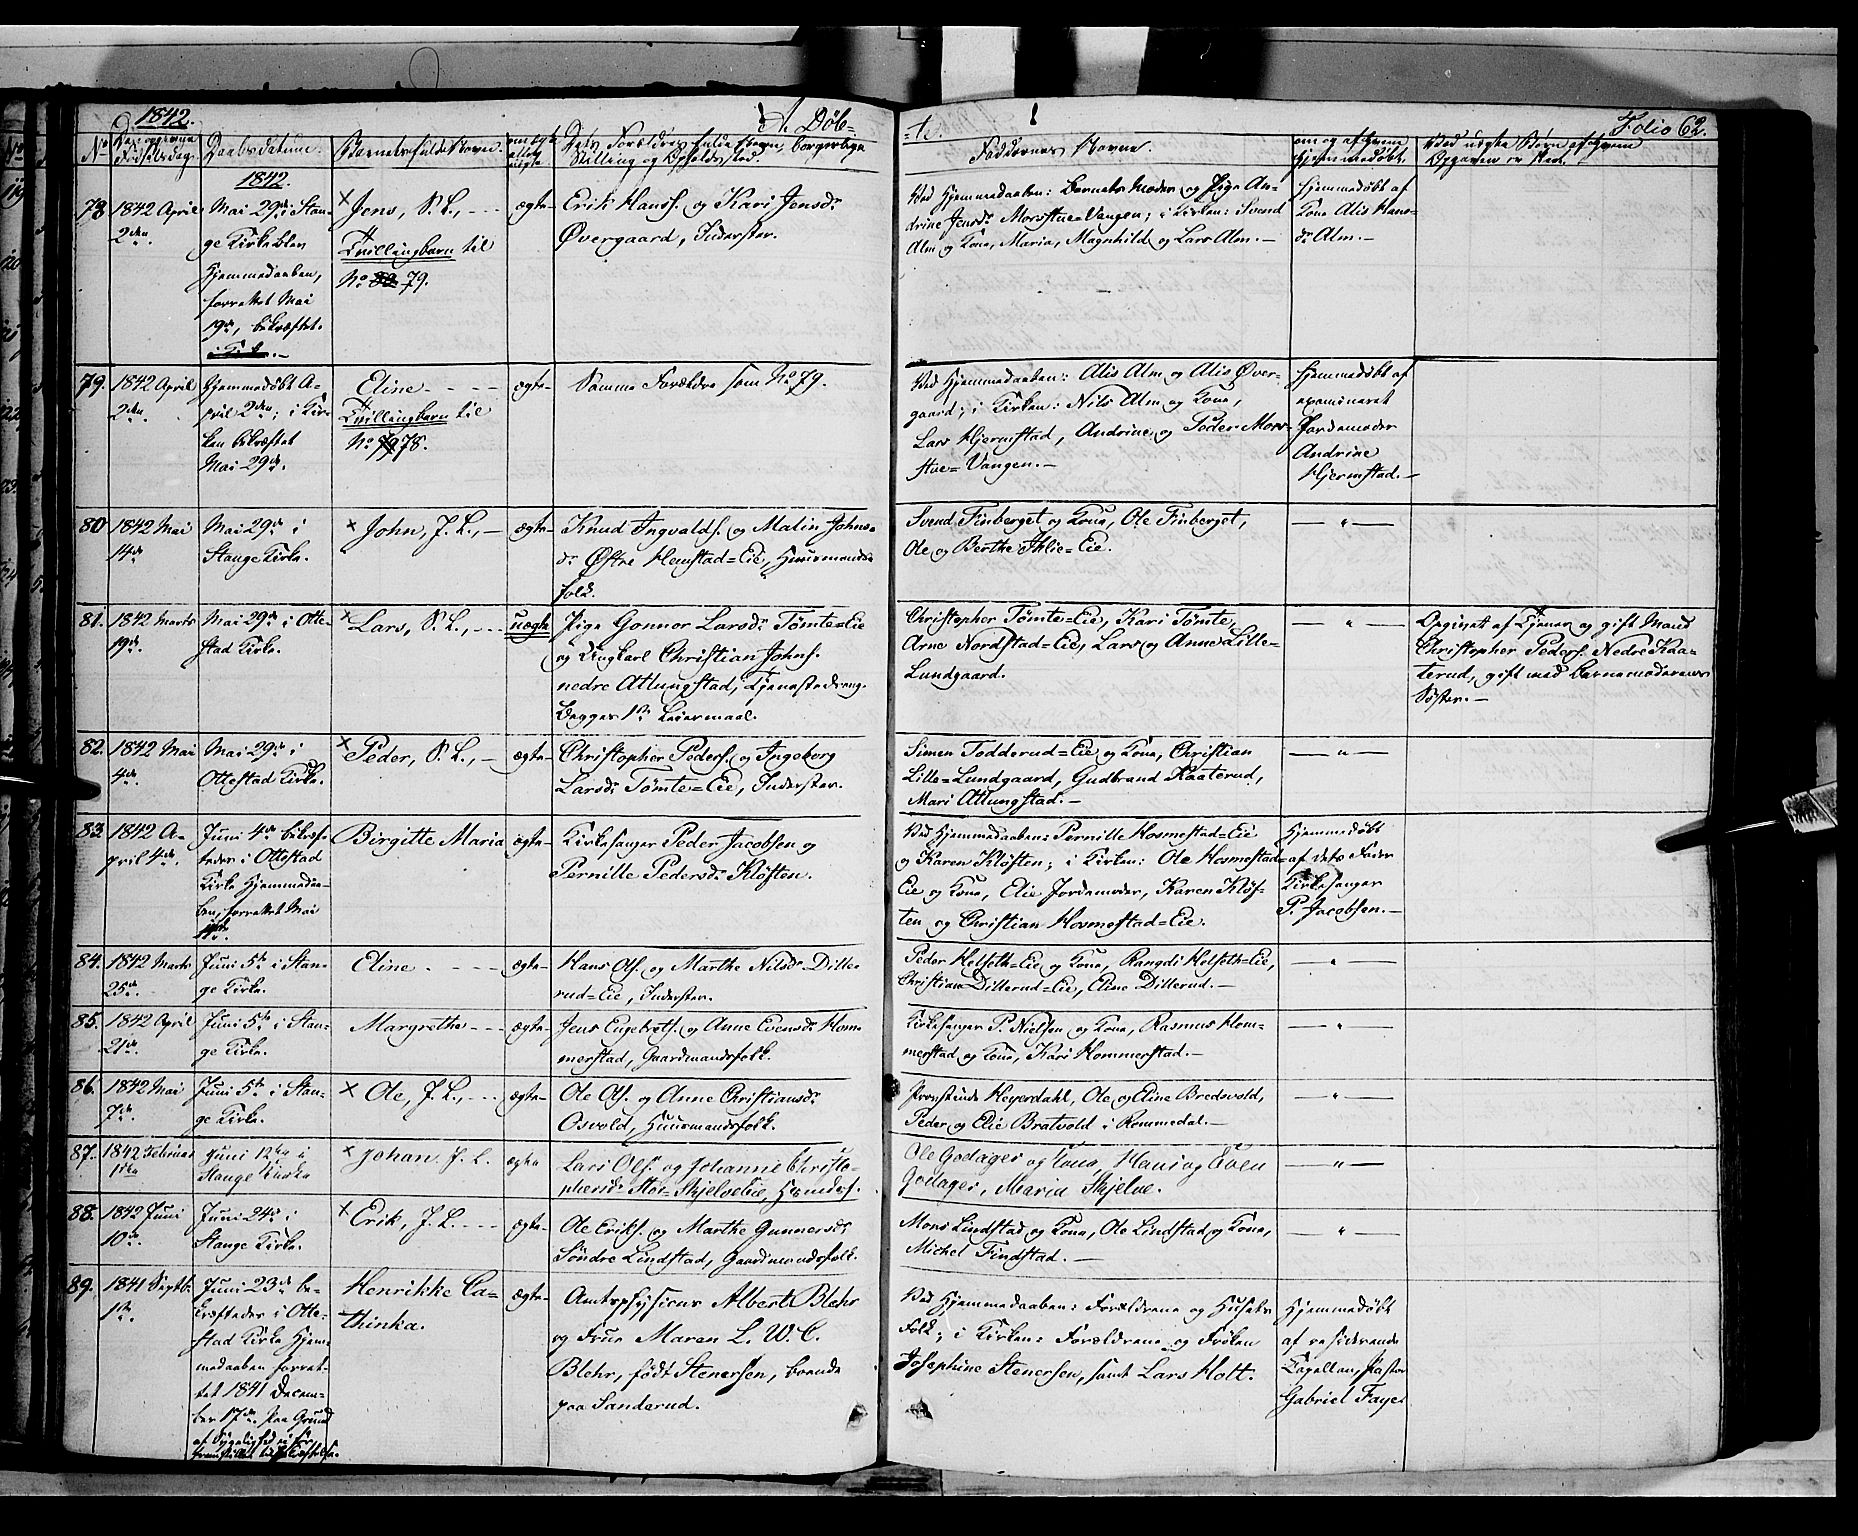 1842.
A. Døb-
-te.
Folio 62.
No
Daabsdatum.
Barnets fulde Navn.
om ægte eller uægte
Dets Forældres fulde Navn, borgerlige
Stilling og Opholdssted.
Faddernes Navne.
om og af hvem
hjemmedøbt.
Ved uægte Børn af hvem
Opgaven er skeet.
1842.
78 1842 April
2den.
Mai 29de i Stan-
ge Kirke blev
Hjemmedaaben,
forrettet Mai
19de, bekræftet.
× Jens, S. L.,
Tvillingbarn til
No 80 79.
ægte
Erik Hanss. og Kari Jensdr
Øvergaard, Inderster.
Ved Hjemmedaaben: Barnets Moder og Pige An-
drine Jensdr Morstue=Vangen; i Kirken: Svend
Alm og Kone, Maria, Magnhild og Lars Alm.
Hjemmedøbt af
Kone Alis Hans-
dr Alm.
79. 1842 April
2den
Hjemmedøbt A-
pril 2den; i Kir-
ken bekræftet
Mai 29de.
Eline
Tvillingbarn til
No 79 78.
ægte
Samme Forældre som No 79.
Ved Hjemmedaaben: Alis Alm og Alis Øver-
gaard; i Kirken: Nils Alm og Kone,
Lars Hjermstad, Andrine og Peder Mors-
tue=Vangen.
Hjemmedøbt af
examineret
Jordemoder
Andrine
Hjermstad.
80 1842 Mai
14de
Mai 29de i
Stange Kirke.
× John, J. L.,
ægte
Knud Ingvalds. og Malin Johns-
dr Østre Hemstad=Eie, Huusmands-
folk.
Svend Finberget og Kone, Ole Finberget,
Ole og Berthe Thlie=Eie.
81. 1842 Marts
19de.
Mai 29de i Otte-
stad Kirke.
× Lars, S. L.,
uægte
Pige Gonnor Larsdr Tømte=Eie
og Ungkarl Christian Johns.
nedre Atlungstad, Tjenestedreng.
Begges 1ste Leiermaal.
Christopher Tømte=Eie, Kari Tømte,
Arne Nordstad=Eie, Lars og Anne Lille-
Lundgaard.
Opgivet af Tjener og gift Mand
Christopher Peders. Nedre Kaa-
terud, gift med Barnemoderens
Søster.
82. 1842 Mai
4de.
Mai 29de i
Ottestad Kirke.
× Peder, S. L.,
ægte
Christopher Peders. og Ingeborg
Larsdr Tømte=Eie, Inderster.
Simen Todderud=Eie og Kone, Christian
Lille=Lundgaard, Gudbrand Kaaterud,
Mari Atlungstad.
83. 1842 A-
pril 4de.
Juni 4de bekræf-
tedes i Ottestad
Kirke Hjemmedaa-
ben, forrettet Mai
Birgitte Maria
ægte
Kirkesanger Peder Jacobsen og
Pernille Pedersdr Kløften.
Ved Hjemmedaaben: Pernille Hosmestad=Eie
og Karen Kløften; i Kirken: Ole Hosmestad=
Eie og Kone, Elie Jordemoder, Karen Kløf-
ten og Christian Hosmestad=Eie.
Hjemmedøbt
af dets Fader
Kirkesanger
P. Jacobsen.
84. 1842 Marts
25de.
Juni 5te i Stan-
ge Kirke.
Eline
ægte
Hans Ols. og Marthe Nilsdr Dille-
rud=Eie, Inderster.
Peder Helseth=Eie og Kone, Rangdi Helseth=Eie,
Christian Dillerud=Eie, Eline Dillerud.
85. 1842 April
21de.
Juni 5te i Stan-
ge Kirke.
Margrethe
ægte
Jens Engebrets. og Anne Evensdr Hom-
merstad, Gaardmandsfolk.
Kirkesanger P. Nielsen og Kone, Rasmus Hom-
merstad og Kone, Kari Hommerstad.
86. 1842 Mai
7de.
Juni 5te i Stan-
ge Kirke.
× Ole, J. L.,
ægte
Ole Ols. og Anne Christiansdr
Osvold, Huusmandsfolk.
Provstinde Heyerdahl, Ole og Eline Bredsvold,
Peder og Elie Bratvold i Rommedal.
87. 1842 Februar
1ste
Juni 12te i
Stange Kirke
× Johan J. L.
ægte
Lars Ols. og Johanne Christo-
phersdr Stor=Skjelveeie, Huusmf.
Ole Godager og Kone, Hans og Even
Godager, Maria Skjelve.
88. 1842 Juni
10de.
Juni 24de i
Stange Kirke.
× Erik, J. L.
ægte
Ole Eriks. og Marthe Gunnersdr
Søndre Lindstad, Gaardmandsfolk.
Mons Lindstad og Kone, Ole Lindstad og Kone,
Michel Findstad.
89. 1841 Septbr.
1ste.
Juni 23de be-
kræftedes i Otte-
stad Kirke Hjem-
medaaben forret-
tet 1841 Decem-
ber 17de. Paa Grund
af Sygelighed ei før
fremstillet til Bekræftelse.
Henrikke Ca-
thinka.
ægte
Amtsphysicus Albert Blehr
og Frue Maren L. W. C.
Blehr, født Stenersen, boende
paa Sanderud.
Ved Hjemmedaaben: Forældrene og Husets
Folk; i Kirken: Forældrene og Frøken
Josephine Stenersen, samt Lars Holt.
Hjemmedøbt
af residerende
Capellan, Pastor
Gabriel Faye.